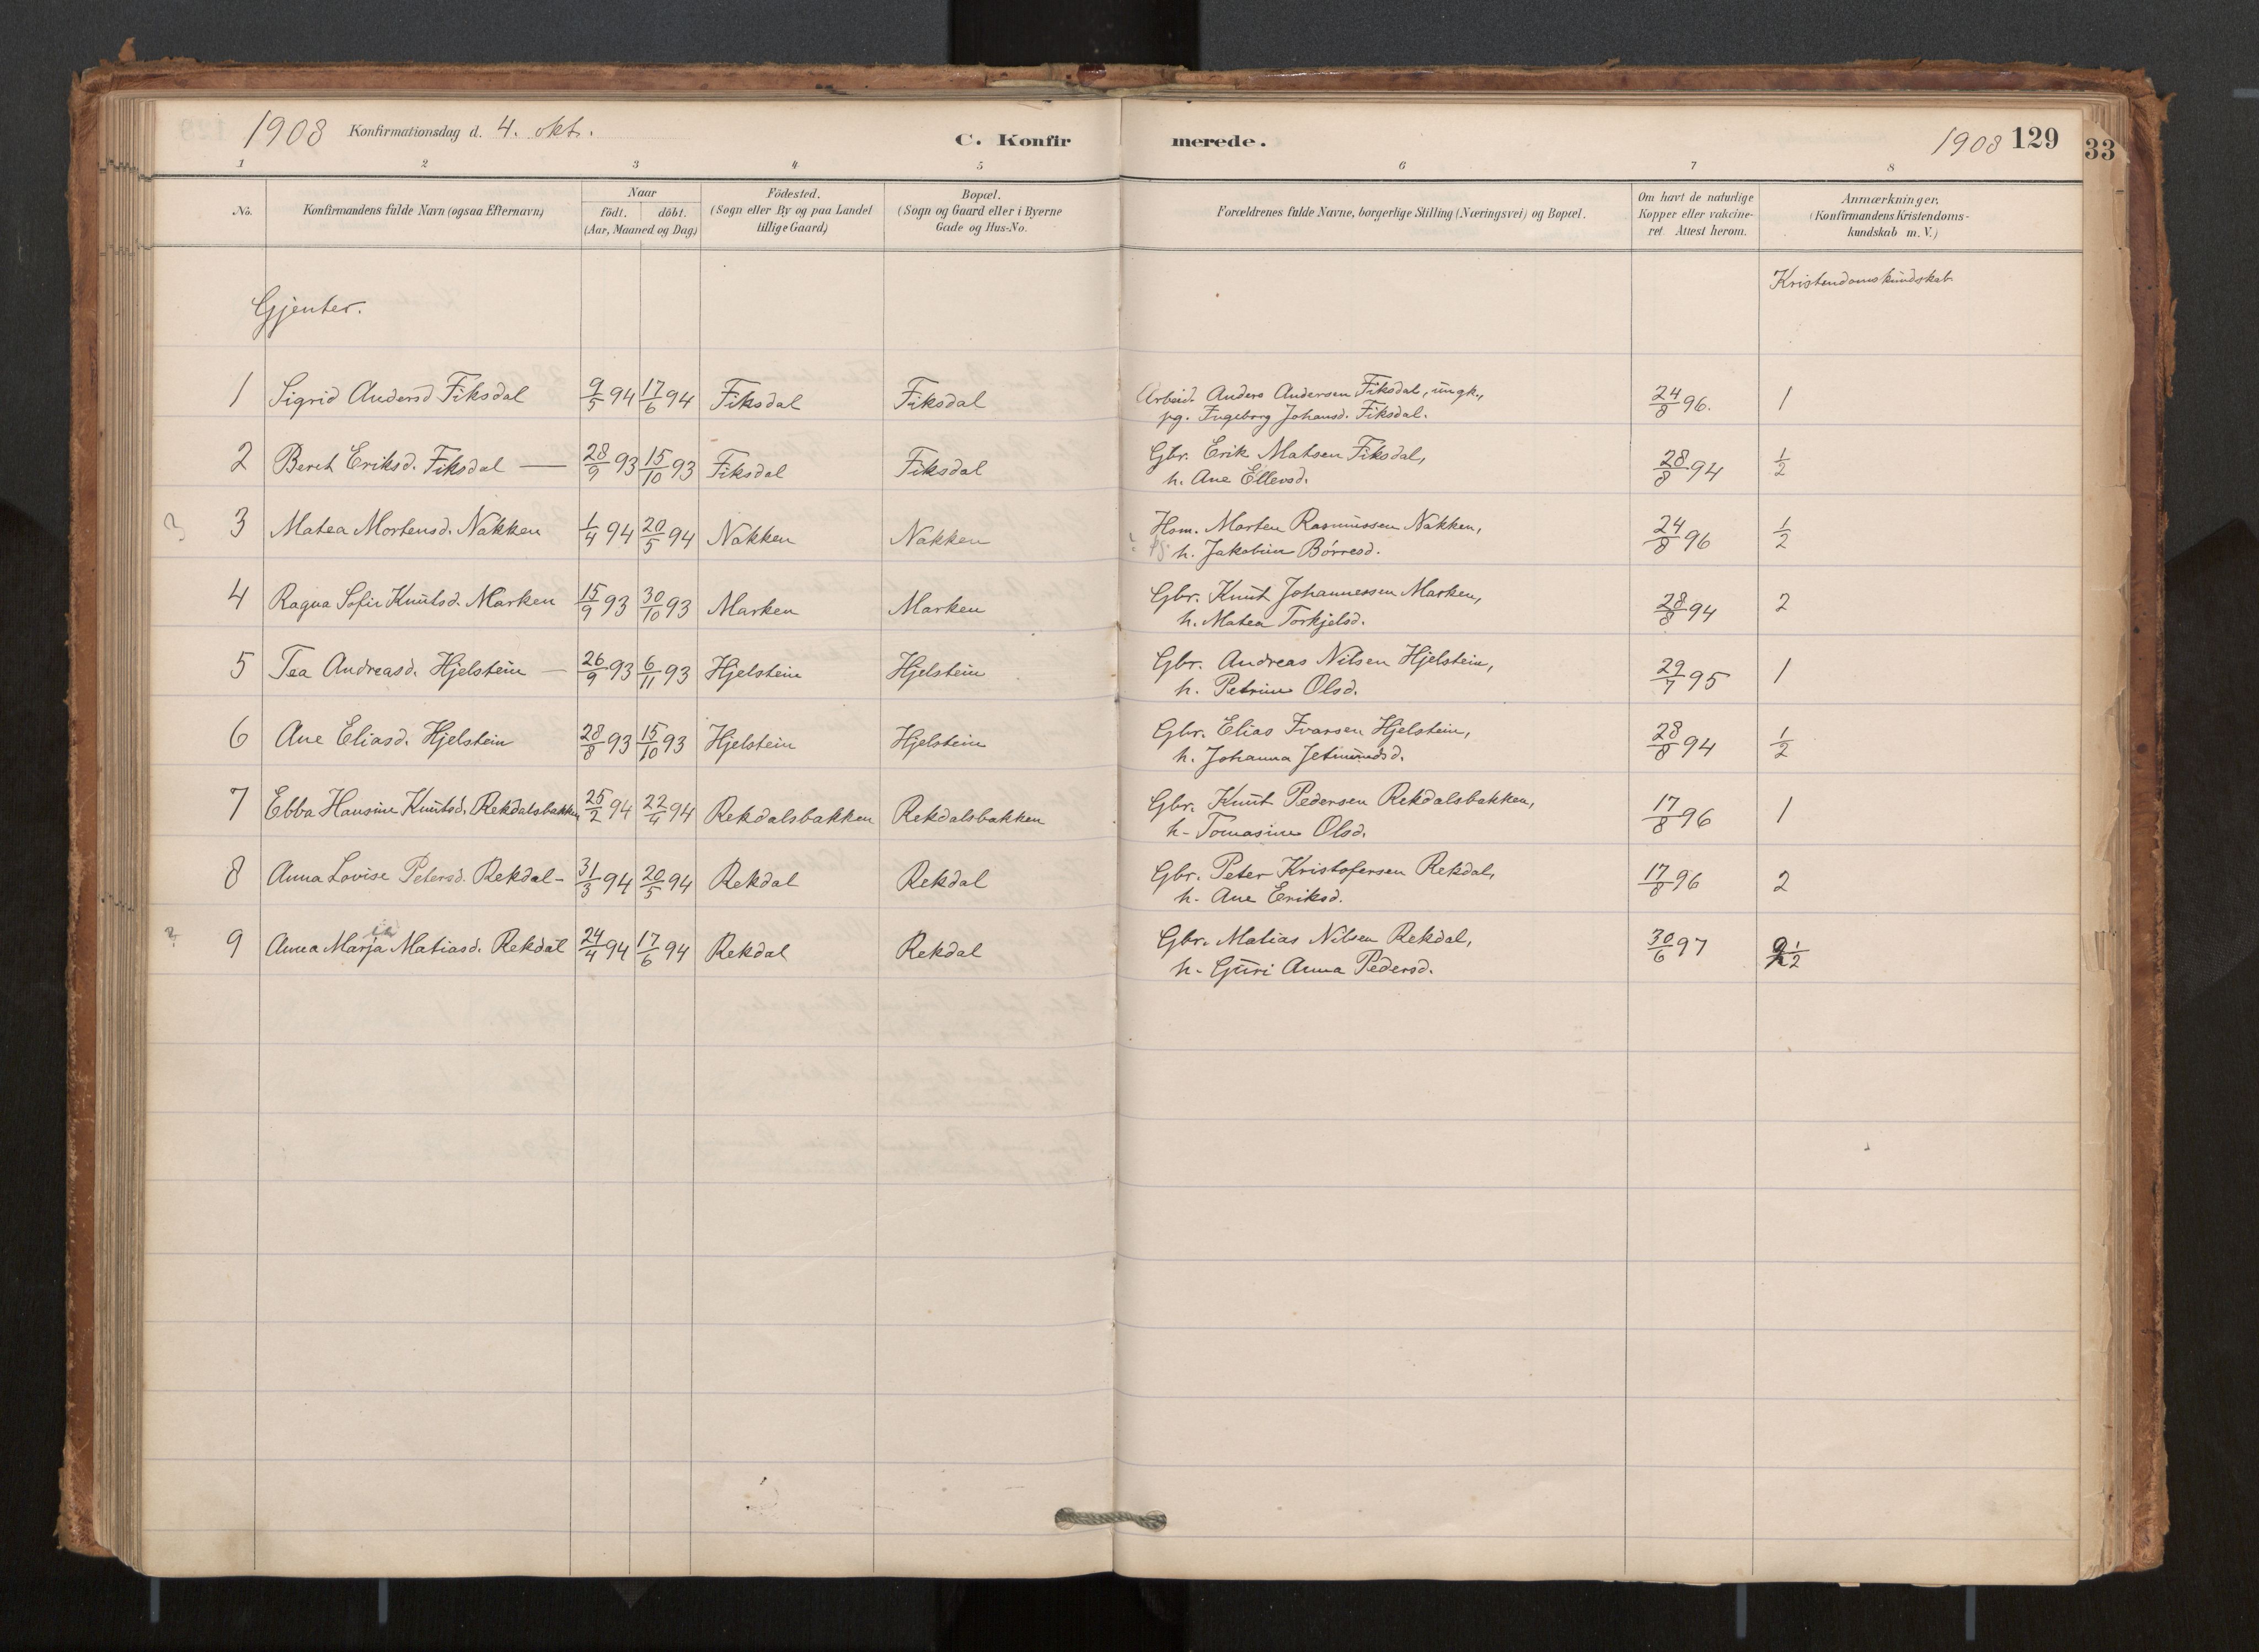 1908 Konfirmationsdag d. 4. okt. C. Konfir merede. 1908 129
33
1 2 3 4 5 6 7 8
No. Konfirmandens fulde Navn (ogsaa Efternavn) Naar födt. döbt. (Aar, Maaned og Dag) Födested. (Sogn eller By og paa Landet tillige Gaard) Bopæl. (Sogn og Gaard eller i Byerne Gade og Hus-No. Forældrenes fulde Navne, borgerlige Stilling (Næringsvei) og Bopæl. Om havt de naturlige Kopper eller vakcineret. Attest herom. Anmærkninger. (Konfirmandens Kristendomskundskab m. V.)
Kristendomskundskab
Gjenter.
1 Sigrid Andersd Fiksdal 9/5 94 17/6 94 Fiksdal Fiksdal Arbeid. Anders Andersen Fiksdal, ungk., 24/8 96. 1
pg. Ingeborg Johansd. Fiksdal.
2 Beret Eriksd. Fiksdal — 28/9 93 15/10 93 Fiksdal Fiksdal Gbr. Erik Matsen Fiksdal, 28/8 94 1/2
h. Ane Ellevsd.
? 3 Matea Mortensd. Nakken 1/4 94 20/5 94 Nakken Nakken Hsm. Morten Rasmussen Nakken, 24/8 96 1/2
? h. Jakobine Børresd.
4 Ragna Sofie Knutsd. Marken 15/9 93 30/10 93 Marken Marken Gbr. Knut Johannessen Marken, 28/8 94 2
h. Matea Torkjelsd.
5 Tea Andreasd. Hjelstein — 26/9 93 6/11 93 Hjelstein Hjelstein Gbr. Andreas Nilsen Hjelstein, 29/7 95 1
h. Petrine Olsd.
6 Ane Eliasd. Hjelstein 28/8 93 15/10 93 Hjelstein Hjelstein Gbr. Elias Ivarsen Hjelstein, 28/8 94 1/2
h. Johanna Jetmundsd.
7 Ebba Hansine Knutsd. Rekdalsbakken 25/2 94 22/4 94 Rekdalsbakken Rekdalsbakken Gbr. Knut Pedersen Rekdalsbakken, 17/8 96 1
h. Tomasine Olsd.
8 Anna Lovise Petersd. Rekdal - 31/3 94 20/5 94 Rekdal Rekdal Gbr. Peter Kristofersen Rekdal, 17/8 96 2
h. Ane Eriksd.
ia
? 9 Anna Marja Matiasd. Rekdal 24/4 94 17/6 94 Rekdal Rekdal Gbr. Matias Nilsen Rekdal, 30/6 97 1/2
h. Guri Anna Pedersd.